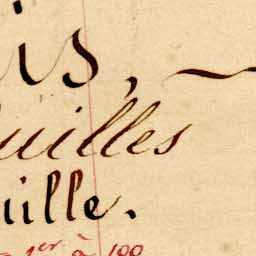 is, ~
uilles
uille.
1er à 100